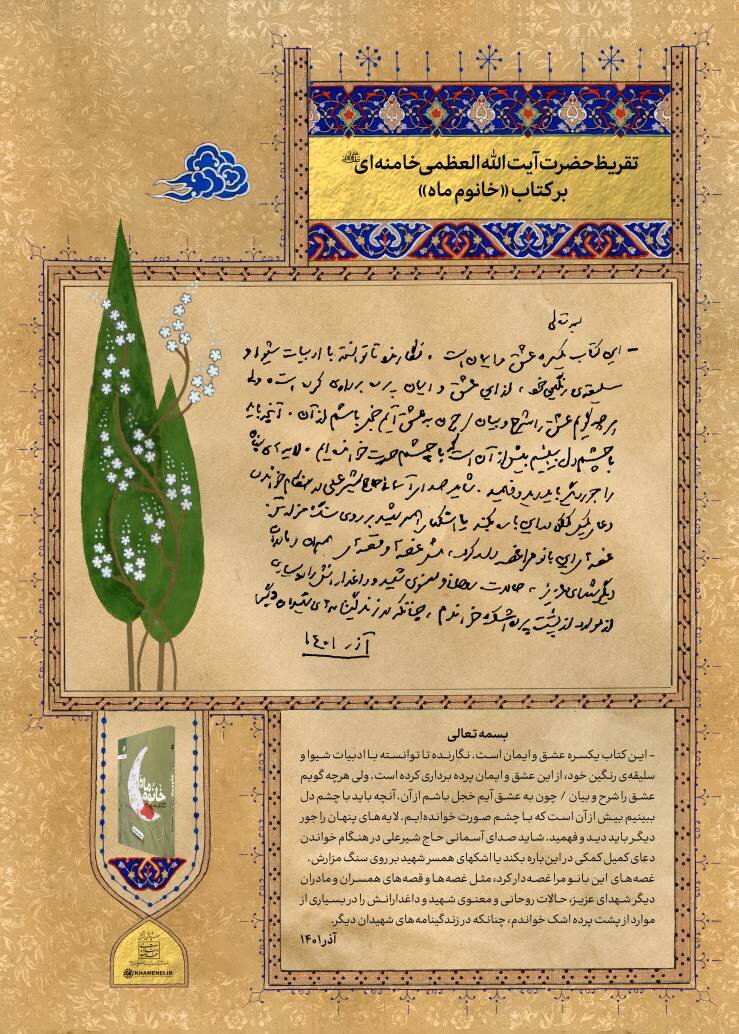 تقریظ حضرت آیت الله العظمی خامنه‌ای
بر کتاب «خانوم ماه»
بسمه تعالی
- این کتاب یکسره عشق و ایمان است. نگارنده تا توانسته با ادبیات شیوا و
سلیقه‌ی رنگین خود، از این عشق و ایمان پرده برداری کرده است. ولی
هر چه گویم عشق را شرح و بیان / چون به عشق آیم خجل باشم از آن. آنچه باید
با چشم دل ببینیم بیش از آن است که با چشم صورت خوانده‌ایم. لایه‌های پنهان
را جور دیگر باید دید و فهمید. شاید صدای آسمانی حاج شیرعلی در هنگام خواندن
دعای کمیل کمکی در این باره بکند یا اشکهای همسر شهید بر روی سنگ مزارش.
غصه‌های این بانو مرا غصه‌دار کرد، مثل غصه‌ها و قصه‌های همسران و مادران
دیگر شهدای عزیز، حالات روحانی و معنوی شهید و داغدارانش را در بسیاری
از موارد از پشت پرده اشک خواندم، چنانکه در زندگینامه‌های شهیدان دیگر.
آذر ۱۴۰۱
بسمه تعالی
- این کتاب یکسره عشق و ایمان است. نگارنده تا توانسته با ادبیات شیوا و
سلیقه‌ی رنگین خود، از این عشق و ایمان پرده برداری کرده است. ولی هرچه گویم
عشق را شرح و بیان / چون به عشق آیم خجل باشم از آن. آنچه باید با چشم دل
ببینیم بیش از آن است که با چشم صورت خوانده‌ایم. لایه‌های پنهان را جور
دیگر باید دید و فهمید. شاید صدای آسمانی حاج شیرعلی در هنگام خواندن
دعای کمیل کمکی در این باره بکند یا اشکهای همسر شهید بر روی سنگ مزارش.
غصه‌های این بانو مرا غصه‌دار کرد، مثل غصه‌ها و قصه‌های همسران و مادران
دیگر شهدای عزیز، حالات روحانی و معنوی شهید و داغدارانش را در بسیاری از
موارد از پشت پرده اشک خواندم، چنانکه در زندگینامه‌های شهیدان دیگر.
آذر ۱۴۰۱
خانوم ماه
KHAMENEI.IR